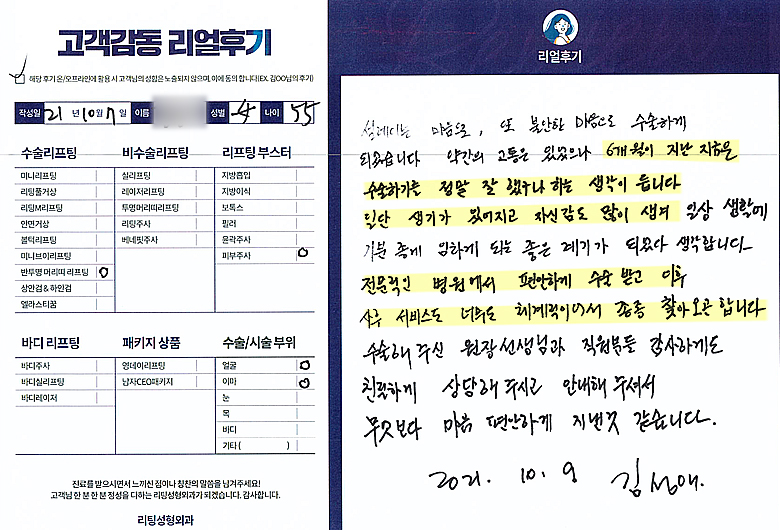 고객감동 리얼후기
해당 후기 온/오프라인에 활용 시 고객님의 성함은 노출되지 않으며, 이에 동의 합니다(EX. 김OO님의 후기)
작성일 21 년 10월 7 일 이름 성별 여 나이 55
수술리프팅
미니리프팅
리팅풀거상
리팅M리프팅
안면거상
볼턱리프팅
미니브이리프팅
반투명 머리띠 리프팅 O
상안검 & 하안검
엘라스티꿈
비수술리프팅
실리프팅
레이저리프팅
투명머리띠리프팅
리팅주사
베네핏주사
리프팅 부스터
지방흡입
지방이식
보톡스
필러
윤곽주사
피부주사 O
바디 리프팅
바디주사
바디실리프팅
바디레이저
패키지 상품
영데이리프팅
남자CEO패키지
수술/시술 부위
얼굴 O
이마 O
눈
목
바디
기타 ( )
진료를 받으시면서 느끼신 점이나 칭찬의 말씀을 남겨주세요!
고객님 한 분 한 분 정성을 다하는 리팅성형외과가 되겠습니다. 감사합니다.
리팅성형외과
리얼후기
설레이는 마음으로, 또 불안한 마음으로 수술하게
되었습니다 약간의 고통은 있었으나 6개월이 지난 지금은
수술하기를 정말 잘 했구나 하는 생각이 듭니다
일단 생기가 있어지고 자신감도 많이 생겨 일상 생활에
기분 좋게 임하게 되는 좋은 계기가 되었다 생각합니다.
전문적인 병원에서 편안하게 수술 받고 이후
사후 서비스도 너무도 체계적이어서 종종 찾아오곤 합니다
수술해 주신 원장선생님과 직원분들 감사하게도
친절하게 상담해 주시고 안내해 주셔서
무엇보다 마음 편안하게 지낸것 같습니다.
2021. 10. 9 김성애.